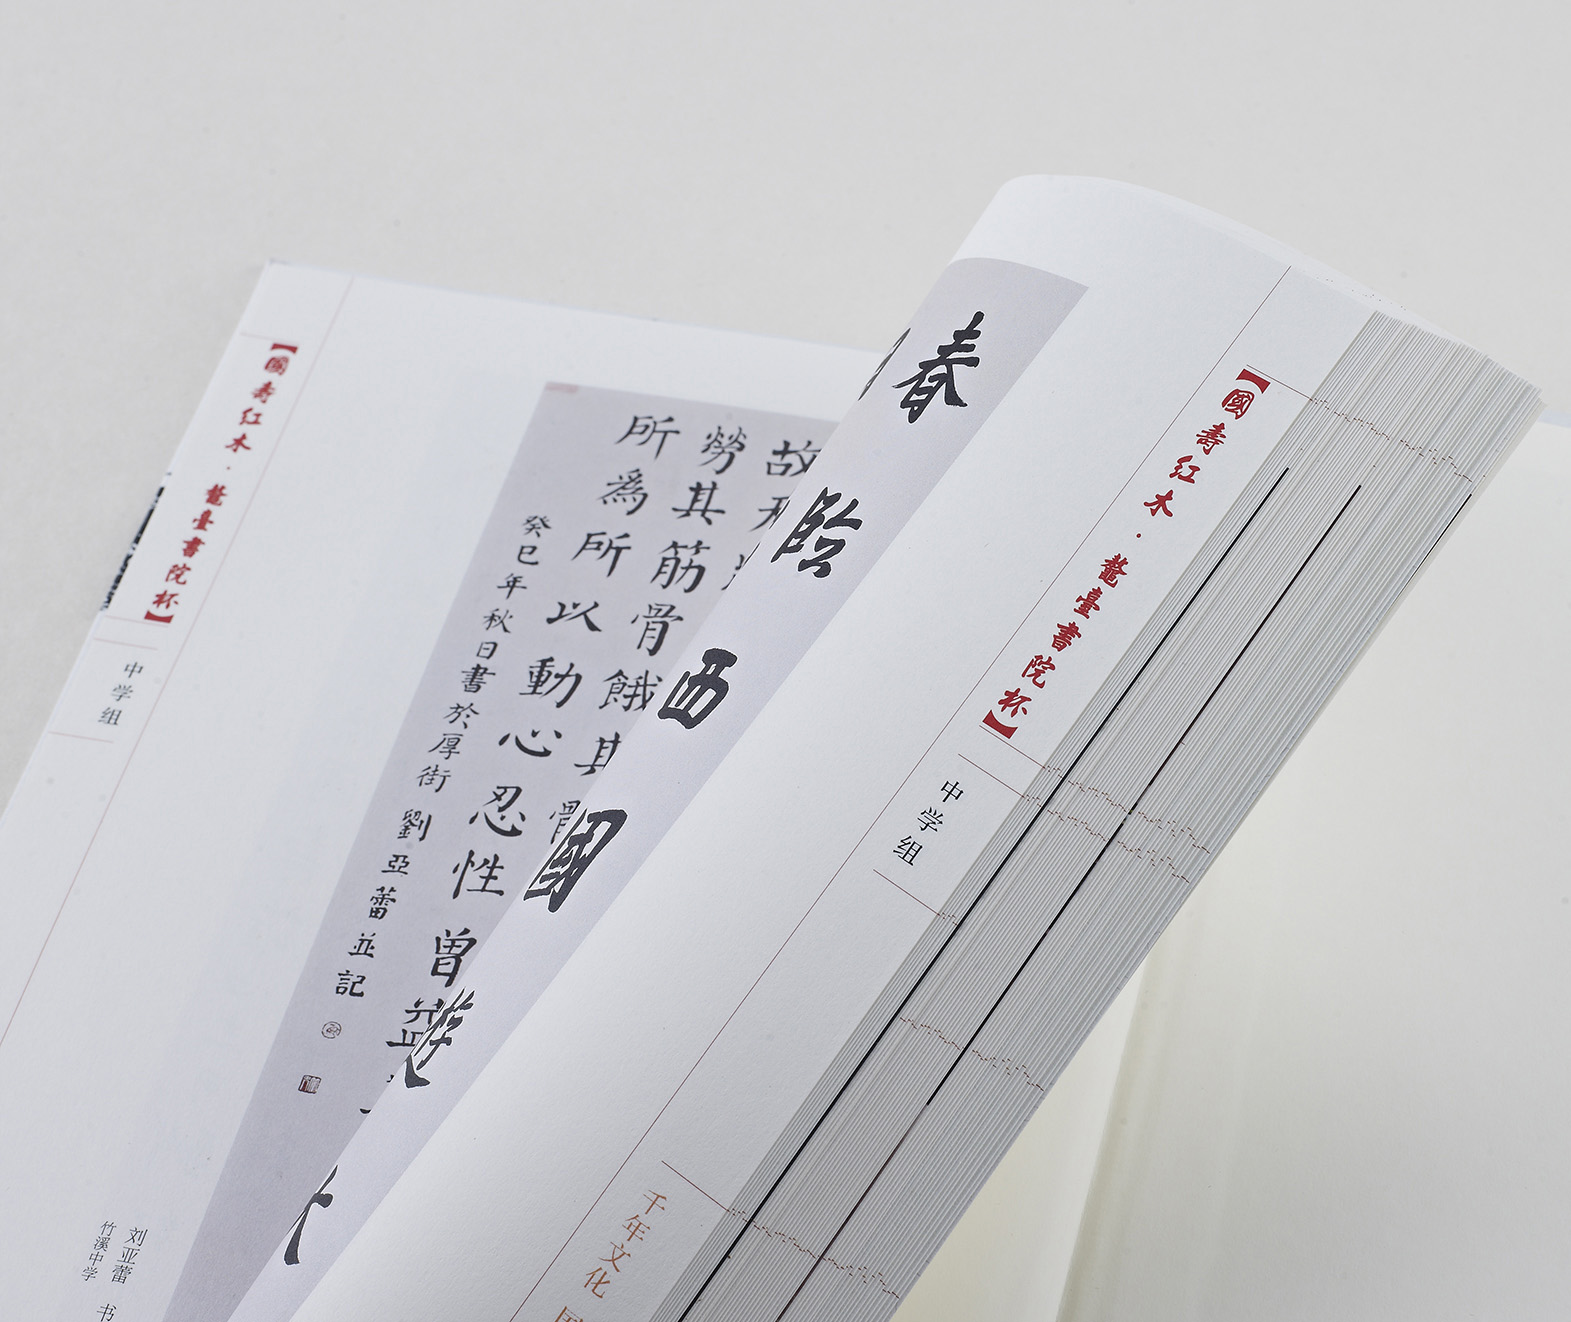 【國壽红木·鼇臺書院杯】
中学组
故
勞其筋骨餓其
所為所以動心忍性曾益
癸巳年秋日書於厚街劉亞蕾並記
刘亚蕾
竹溪中学 书
春臨西國遊
【國壽红木·鼇臺書院杯】
中学组
千年文化